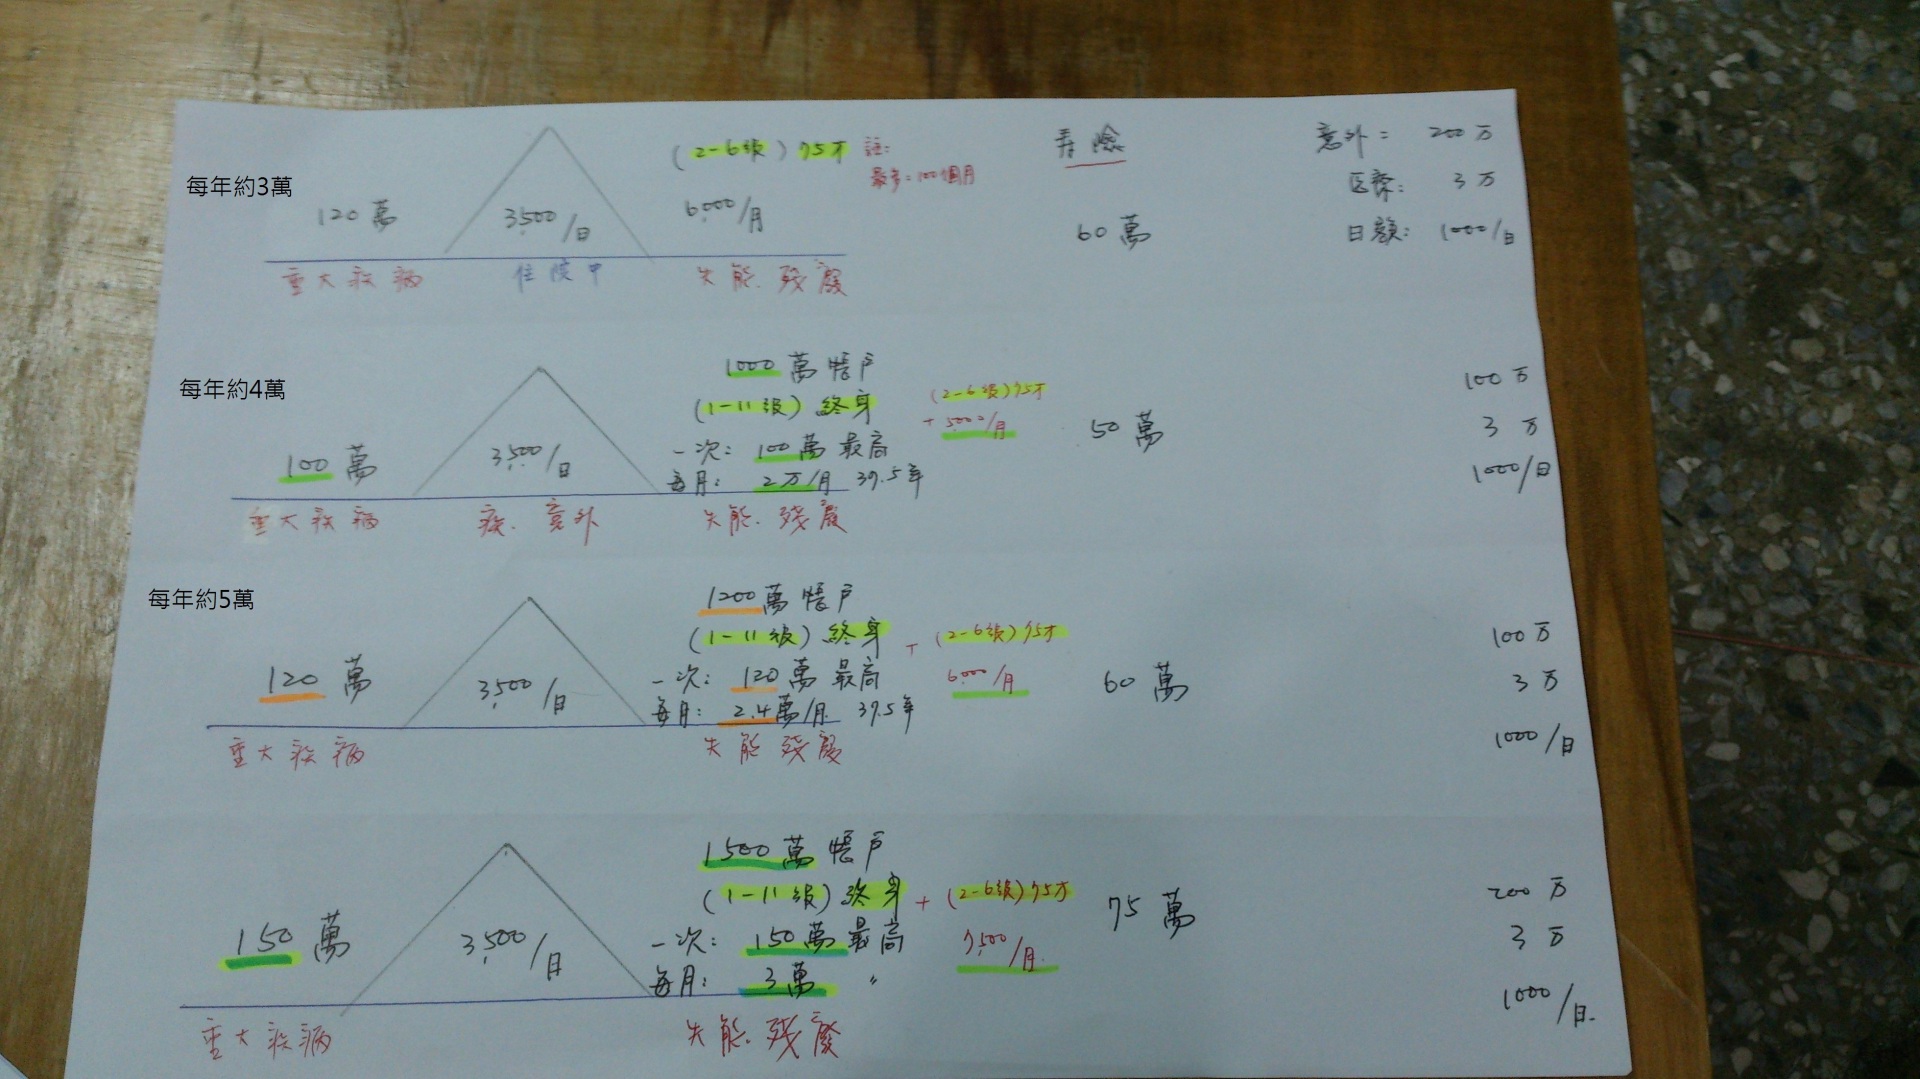 每年約3萬
120 萬
3,500/日
(2-6級) 75才
6,000/月
註:
最多=100個月
壽險
60 萬
意外= 200万
医療: 3万
日額: 1000/日
重大疾病
住院中
失能.殘廢
每年約4萬
100 萬
3,500/日
1000 萬帳戶
(1-11級) 終身
一次: 100萬 最高
每月: 2万/月 39.5年
(2-6級)75才
+ 5000/月
50 萬
100万
3万
1000/日
重大疾病
疾.意外
失能.殘廢
每年約5萬
120 萬
3,500/日
1200萬帳戶
(1-11級) 終身 + (2-6級)75才
一次: 120萬 最高
每月: 2.4萬/月 39.5年
6,000/月
60 萬
100万
3万
1000/日
重大疾病
失能殘廢
150 萬
3,500/日
1500萬帳戶
(1-11級) 終身 + (2-6級)75才
一次: 150萬 最高
每月: 3萬 〃
7,500/月.
75 萬
200万
3万
1000/日.
重大疾病
失能.殘廢